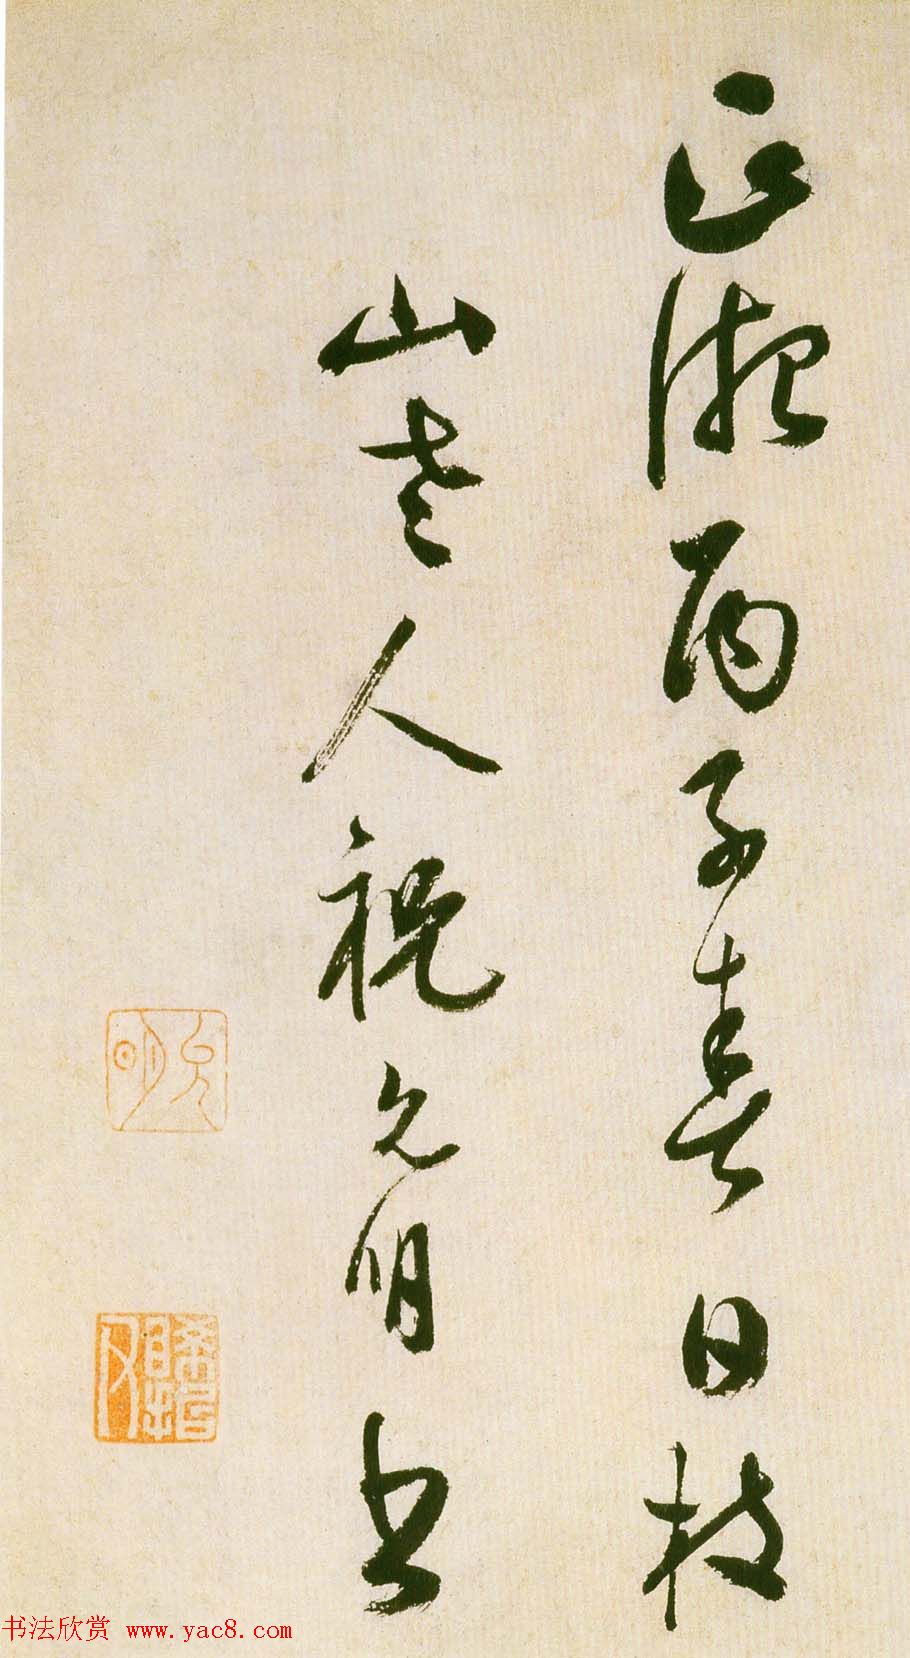 正德丙子春日枝
山老人祝允明書
允明
书法欣赏 www.yac8.com